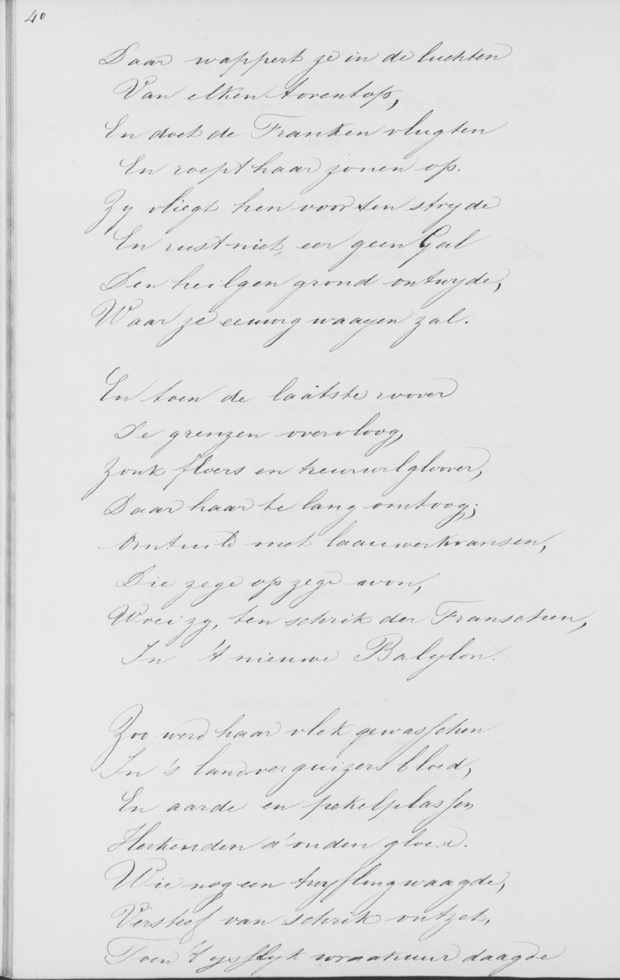 40
Daar wappert ze in de luchten
Van elken torentop,
En doet de Franken vlugten
En roept haar zonen op.
Zy vliegt hen voor ten stryde
En rust niet, eer geen Gal
Den heilgen grond ontwyde,
Waar ze eeuwig waayen zal.
En toen de laatste roover
De grenzen overvloog,
Zonk floers en treurwilgloover,
Daar haar te lang omtoog;
Omtuild met laauwerkransen,
Die zege op zege won,
Woei zy, ten schrik der Franschen,
In 't nieuwe Babylon.
Zoo werd haar vlek gewasschen
In 's landverguizers bloed,
En aarde en pekelplassen
Herkenden d' ouden gloed.
Wie nog een twyfling waagde,
Versteef van schrik ontzet,
Toen 't yslyk wraakuur daagde